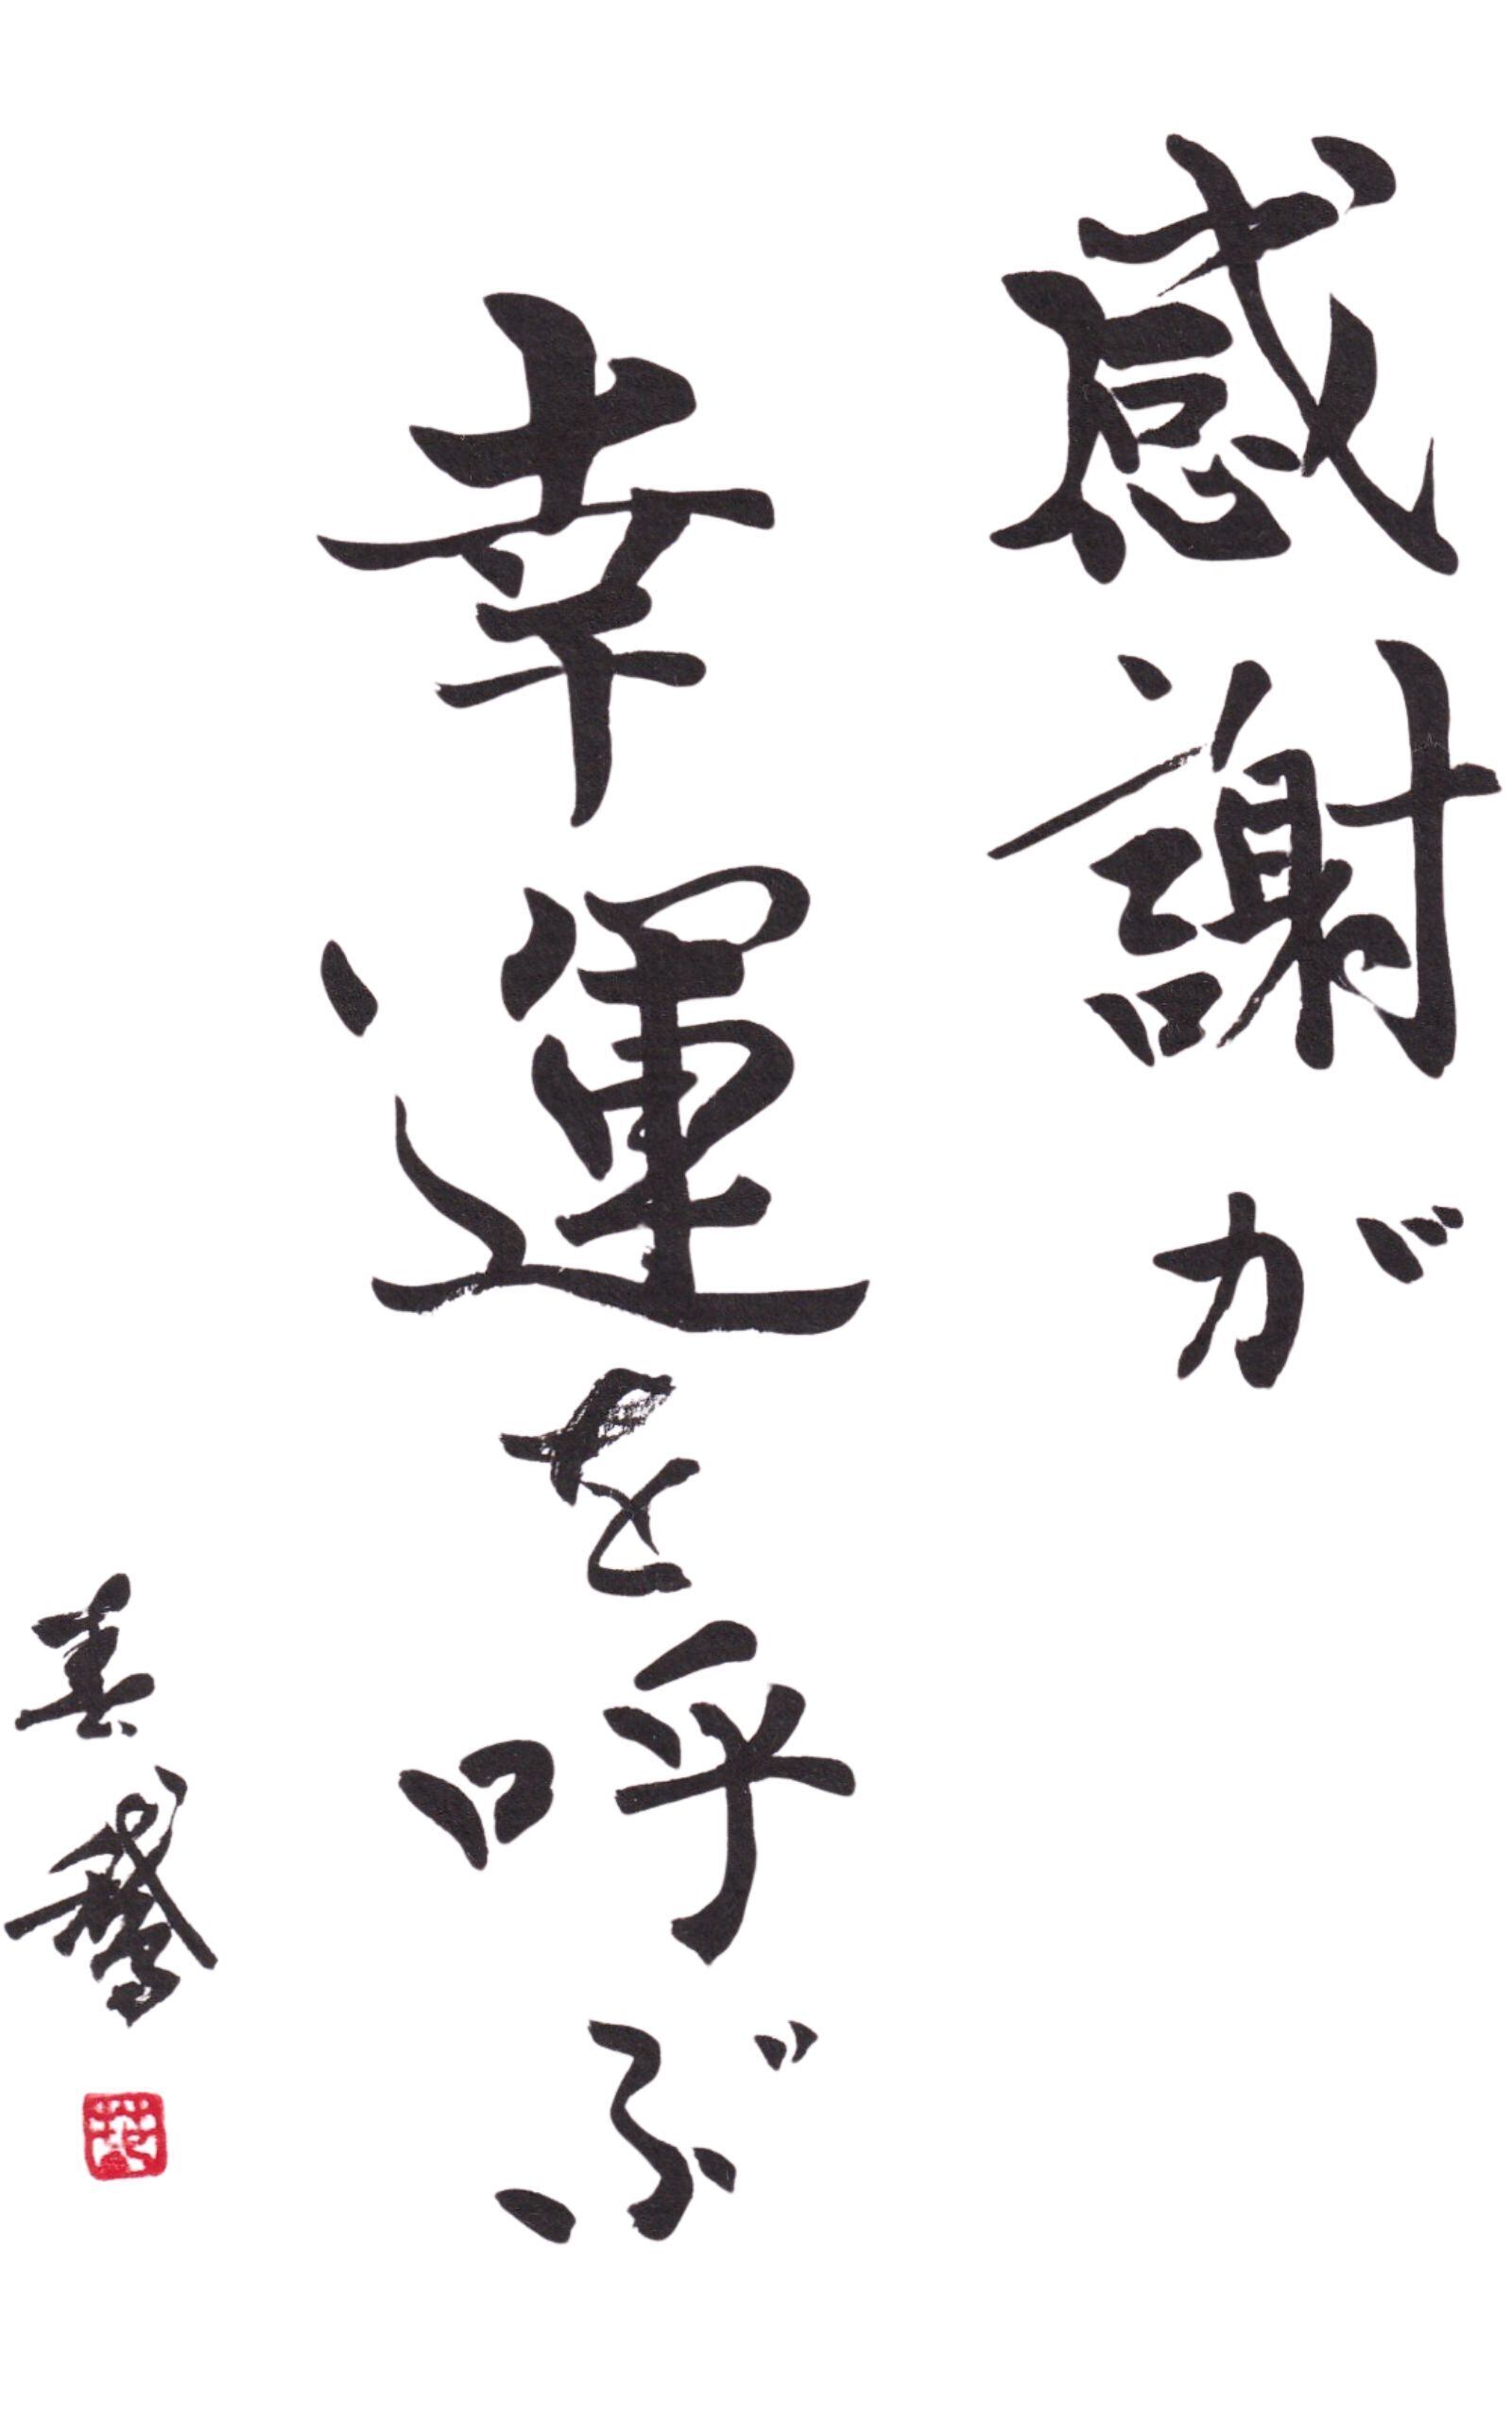 感謝が
幸運を呼ぶ
春鵞